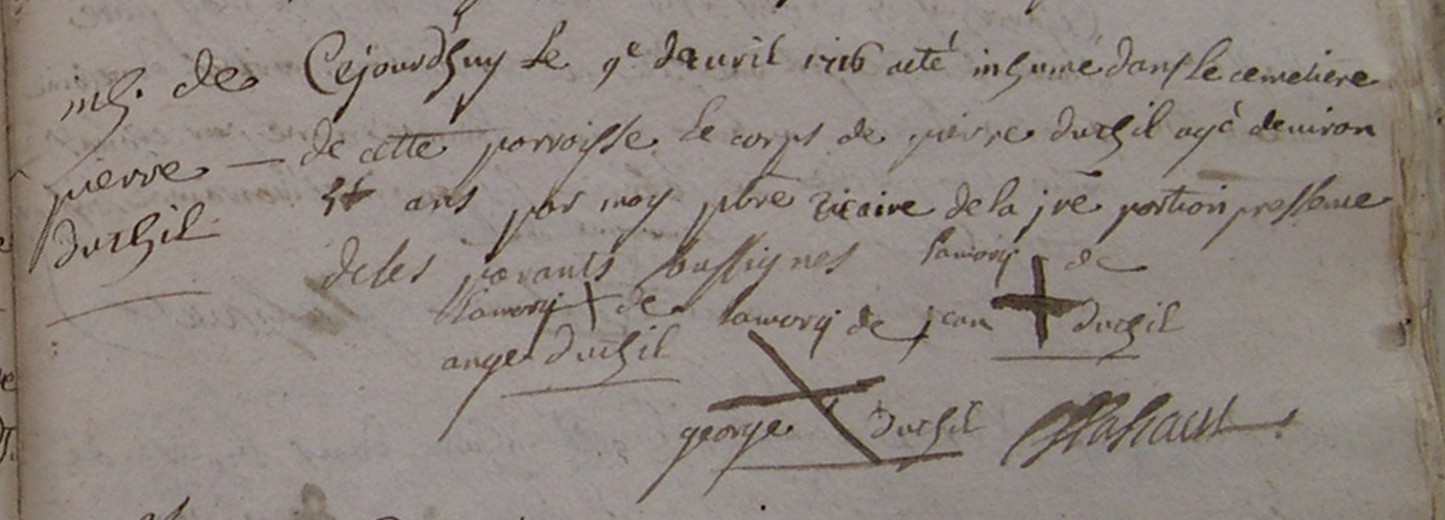 inh. de
pierre
duthil
Cejourdhuy le 9e dauril 1716 aeté inhumé dans le cemetiere
de cette parroisse le corps de pierre duthil agé denuiron
ans par moy pbre vicaire dela jre portion pressence
deses parants soussignes lamarq de
lamarq de lamarq de jean duthil
ange duthil
george duthil